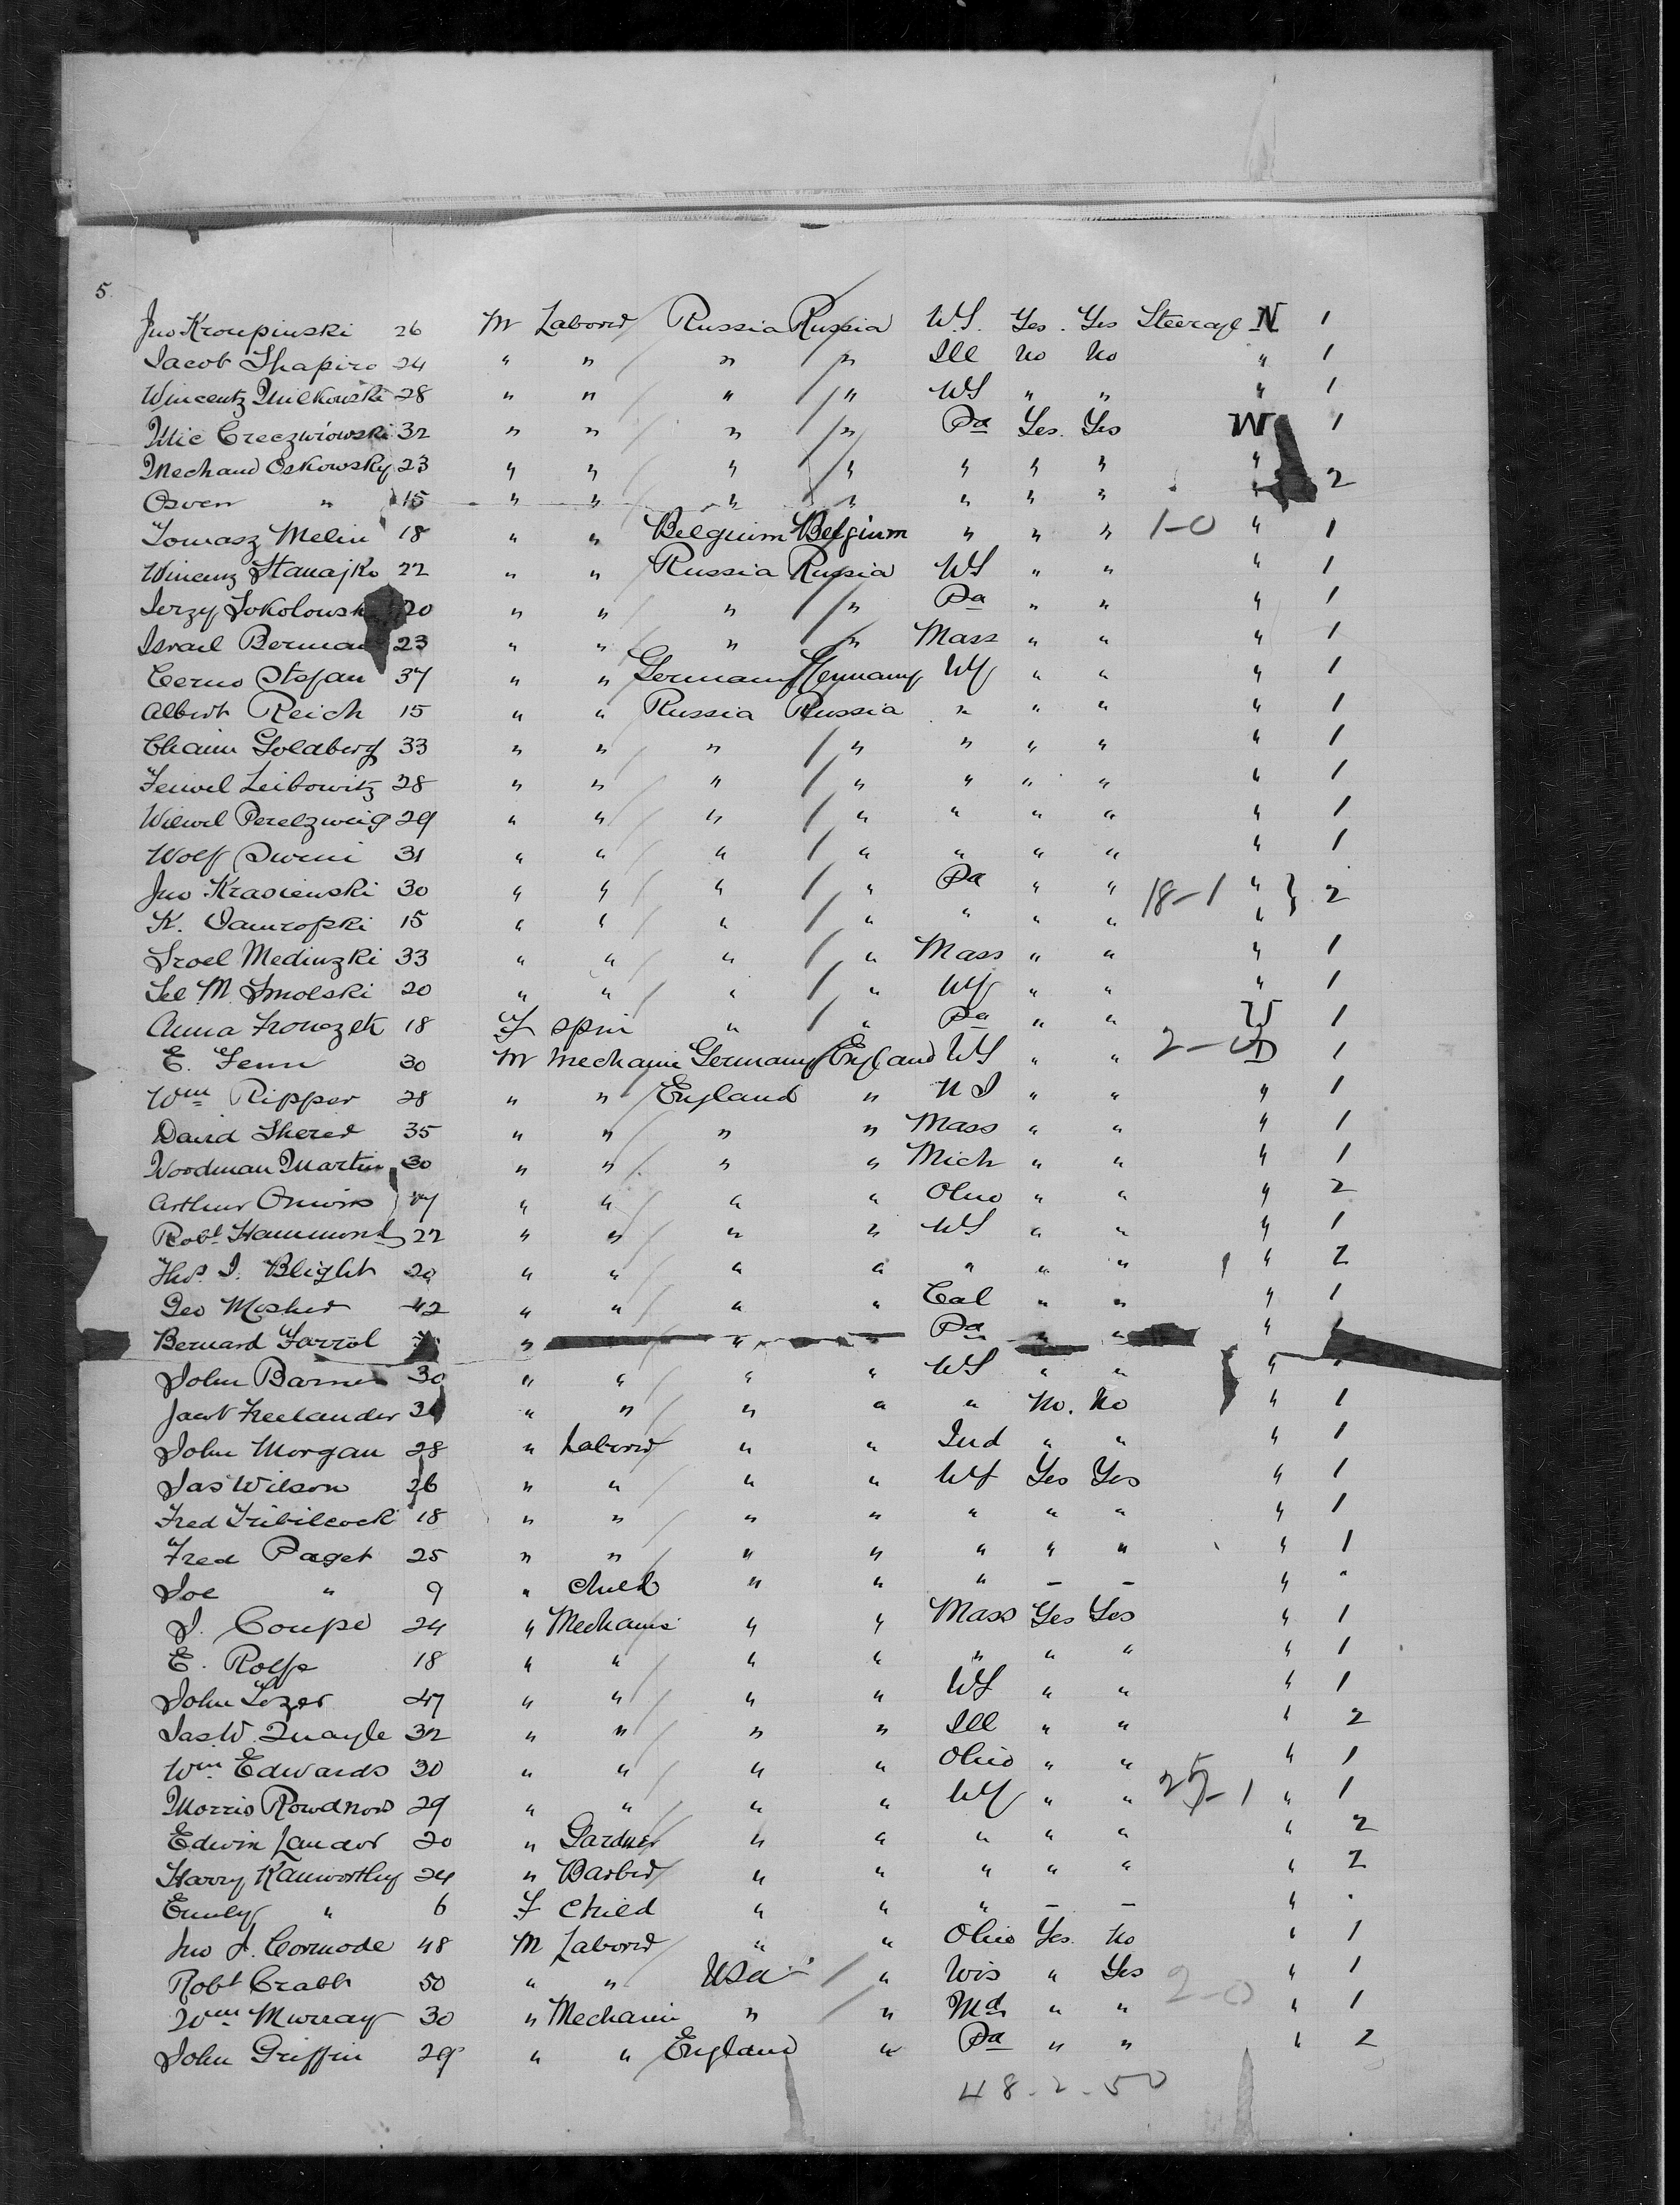 5.
Jno Kroupinski 26 M Laborer Russia Russia W.S. Yes. Yes Steerage N 1
Jacob Shapiro 24 " " " " Ill No No " 1
Wincentz Milkowski 28 " " " " WS " " " 1
Mic Creczwiowski 32 " " " " Pa Yes. Yes W 1
Mechaud Oskowsky 23 " " " " " " " "
Osven " 15 " " " " " " " 2
Tomasz Melin 18 " " Belgium Belgium " " " 1-0 " 1
Wincenz Stanajko 22 " " Russia Russia WS " " " 1
Jerzy Sokolowsk 20 " " " " Pa " " " 1
Israel Berman 23 " " " " Mass " " " 1
Cerno Stefan 37 " " Germany Germany NY " " " 1
Albert Reich 15 " " Russia Russia " " " " 1
Chaim Goldberg 33 " " " " " " " " 1
Feiwel Leibowitz 28 " " " " " " " " 1
Wilwel Perelzweig 29 " " " " " " " " 1
Wolf 31 " " " " " " " " 1
Jno Krasienski 30 " " " " Pa " " 18-1 " } 2
K. 15 " " " " " " " "
Sroel Medinzki 33 " " " " Mass " " " 1
Lee M. Smolski 20 " " " " NY " " " 1
Anna Fronczek 18 F Spin " " Pa " " W 1
E. Fenn 30 M Mechanic Germany England WS " " 2- 1
Wm Ripper 28 " " England " N J " " " 1
David Sherer 35 " " " " Mass " " " 1
Woodman Martin 30 " " " " Mich " " " 1
Arthur " " " " Ohio " " " 2
Robt Hammond 22 " " " " WS " " " 1
Thos. J. Blight 20 " " " " " " " " 2
Geo Mosher 42 " " " " Cal " " " 1
Bernard Farrol " " Pa " " " 1
John Barnes 30 " " " " WS " " "
Jacob Freelander " " " " " No. No " 1
John Morgan 28 " Laborer " " Ind " " " 1
Jas Wilson 26 " " " " NY Yes Yes " 1
Fred Tribilcock 18 " " " " " " " " 1
Fred Paget 25 " " " " " " " " 1
Joe " 9 " Child " " " - - " "
J. Coupe 24 " Mechanic " " Mass Yes Yes " 1
E. Rolfe 18 " " " " " " " " 1
John Lezer 47 " " " " WS " " " 1
Jas. W. Quayle 32 " " " " Ill " " " 2
Wm Edwards 30 " " " " Ohio " " " 1
Morris Rowdnow 29 " " " " NY " " 25-1 " 1
Edwin Landor 20 " Gardner " " " " " " 2
Harry Kanworthy 24 " Barber " " " " " " 2
Emily " 6 F Child " " " - - " .
Jno J. Cormode 48 M Laborer " " Ohio Yes. No " 1
Robt Crabb 50 " " USA " Wis " Yes 2-0 " 1
Wm Murray 30 " Mechanic " " Md " " " 1
John Griffin 29 " " England " Pa " " " 2
48-2-50